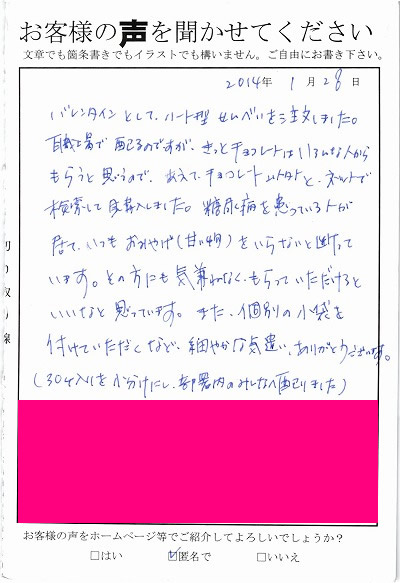 お客様の声を聞かせてください
文章でも箇条書きでもイラストでも構いません。ご自由にお書き下さい。
2014年 1月 28日
バレンタインとして、ハート型せんべいを注文しました。
職場で配るのですが、きっとチョコレートはいろんな人から
もらうと思うので、あえて、チョコレート以外と、ネットで
検索して購入しました。糖尿病を患っている人が
居て、いつもおみやげ(甘い物)をいらないと断って
います。その方にも気兼ねなく、もらっていただけると
いいなと思っています。また、個別の小袋を
付けていただくなど、細やかな気遣い、ありがとうございます。
(30枚入りを小分けにし、部署内のみんなへ配りました)
切り取り線
お客様の声をホームページ等でご紹介してよろしいでしょうか?
□はい ☑匿名で □いいえ